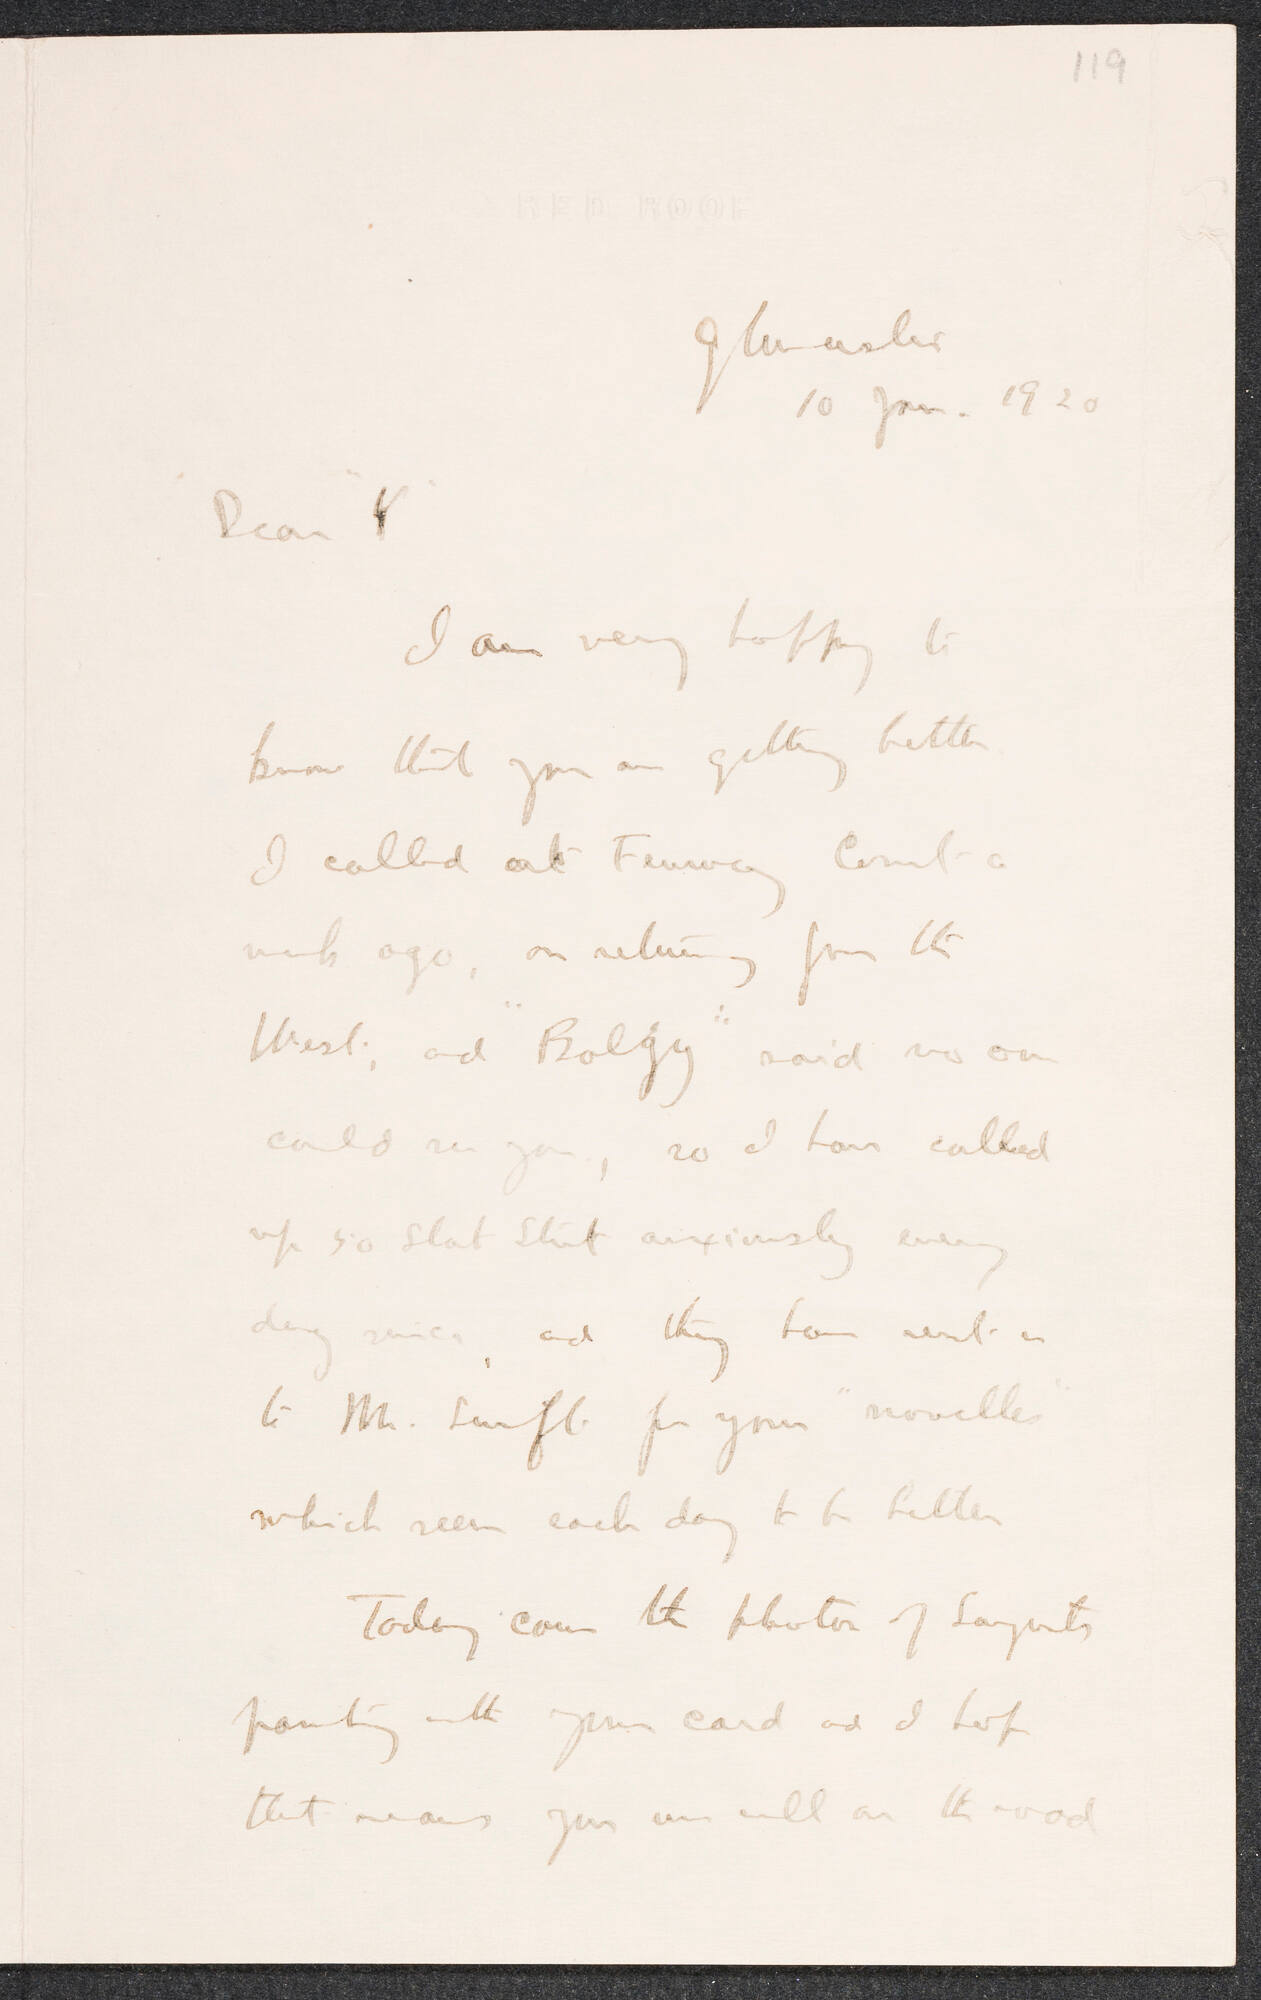 119
RED ROOF
Gloucester
10 Jan. 1920
Dear "Y"
I am very happy to
know that you are getting better
I called at Fenway Court a
week ago, on returning from the
West, and "Bolgy" said no one
could see you, so I have called
up 50 State Street anxiously every
day since, and they have sent me
to Mr. Swift for your "nouvelles"
which seem each day to be better
Today come the photos of Sargents
painting with your card and I hope
that means you are well on the road